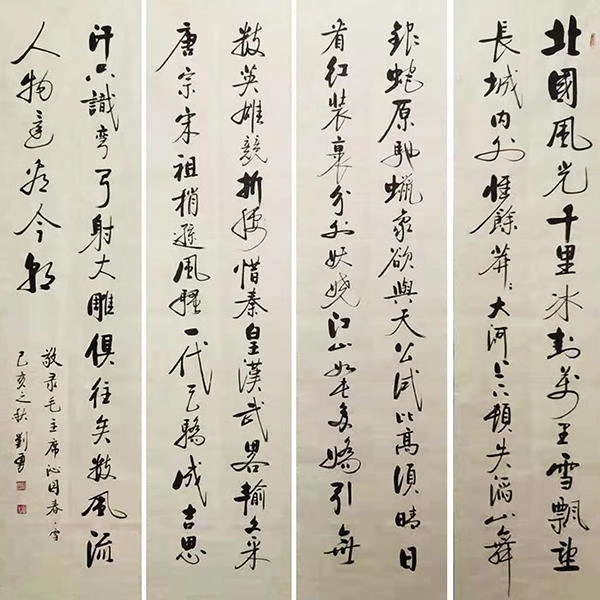 北國風光千里冰封萬里雪飄望
長城内外惟餘莽〻大河上下頓失滔〻山舞
銀蛇原馳蠟象欲與天公試比高須晴日
看红裝裹分外妖嬈江山如此多嬌引無
數英雄競折腰惜秦皇漢武略輸文采
唐宗宋祖稍遜風騷一代天驕成吉思
汗只識彎弓射大雕俱往矣數風流
人物還看今朝
敬录毛主席沁园春·雪
己亥之秋劉勇